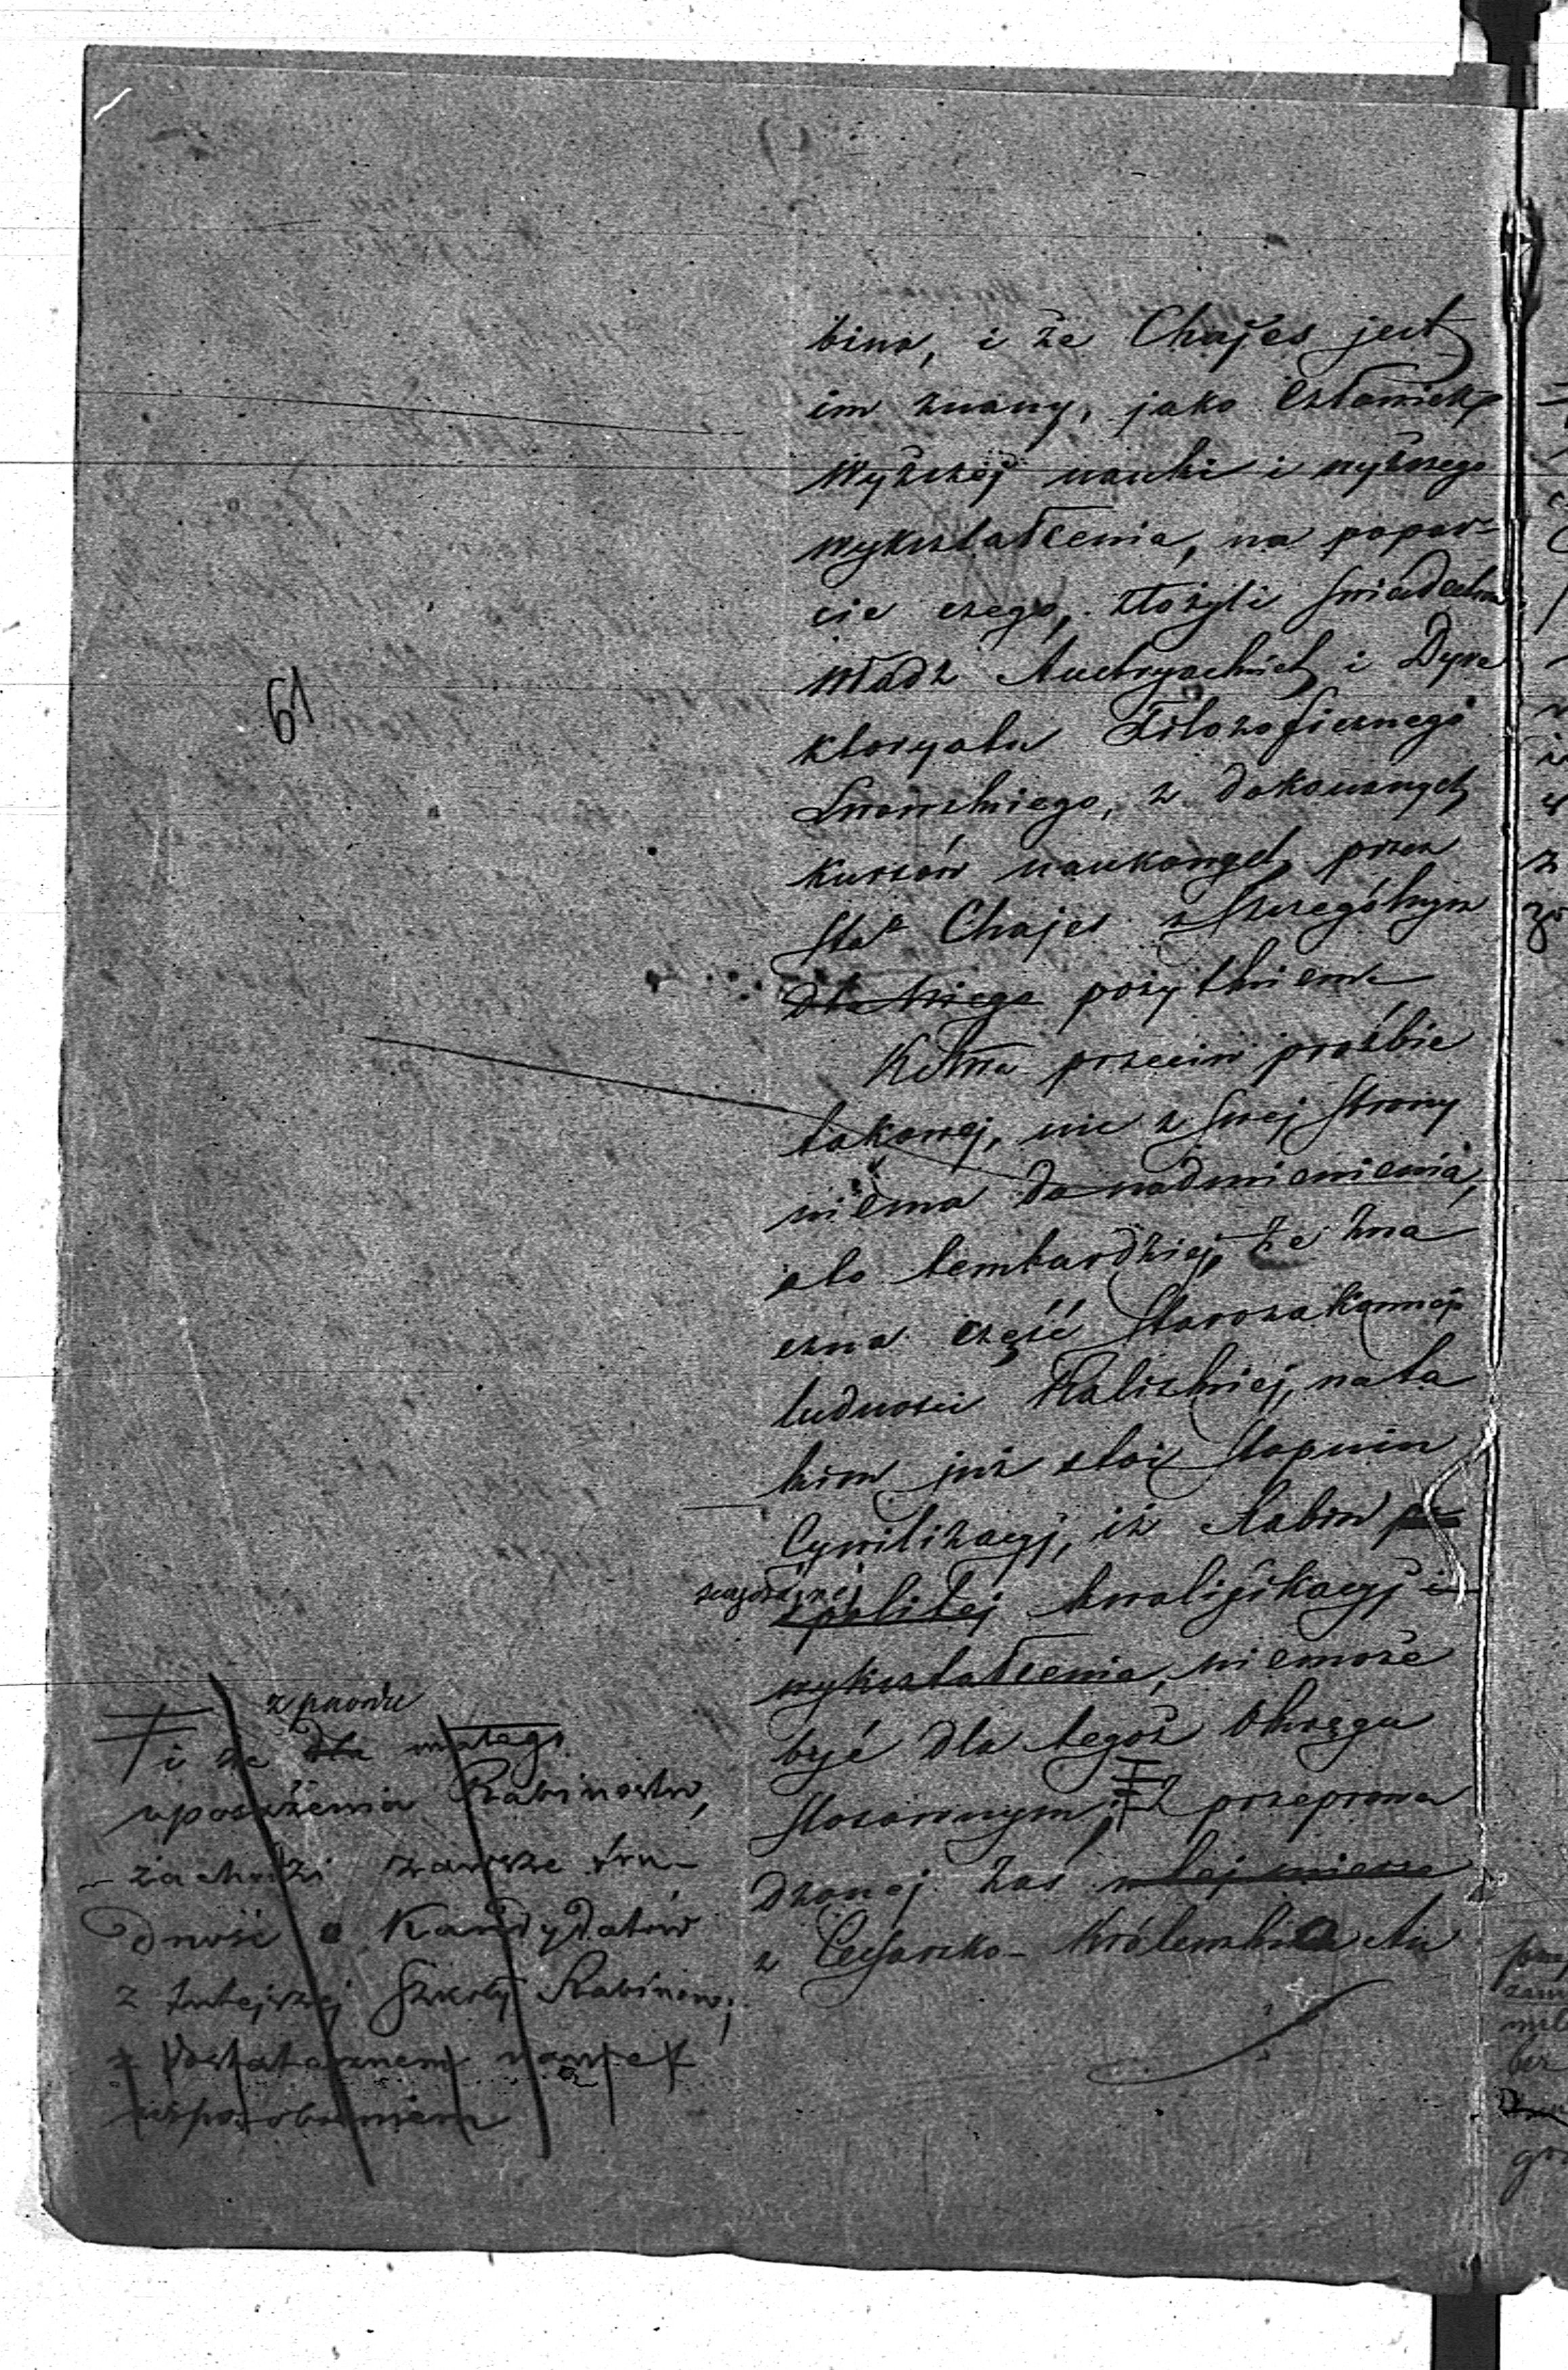 bina, i że Chajes jest
im znany, jako Człowiek
wyższej nauki i wyższego
wykształcenia, na popar-
cie czego, złożyli świadectwa
władz Austryackich i Dyre
ktoryatu Filozoficznego
Lwowskiego, z dokonanych
kursów naukowych przez
Chajes z szczególnym
dla niego pożytkiem
przeciw prośbie
takowej, nic z swej strony
niema do nadmienienia,
a to tembardziej, że zna
czna część Starozakonnej
ludności Kaliskiej, na ta
kim już stoi stopniu
Cywilizacyj, iż Rabin
spolitej kwalifikacyj i
wykształcenia, niemoże
być dla tegoż Okręgu
stosownym; Z przeprowa
dzonej zaś w tej mierze
z Cesarsko-Królewską Au
61
z powodu
i że dla małego
uposażenia Rabinostw,
zachodzi zawsze tru-
dność o Kandydatów
z tutejszej Szkoły Rabinów;
z dostatecznem nawet
usposobieniem